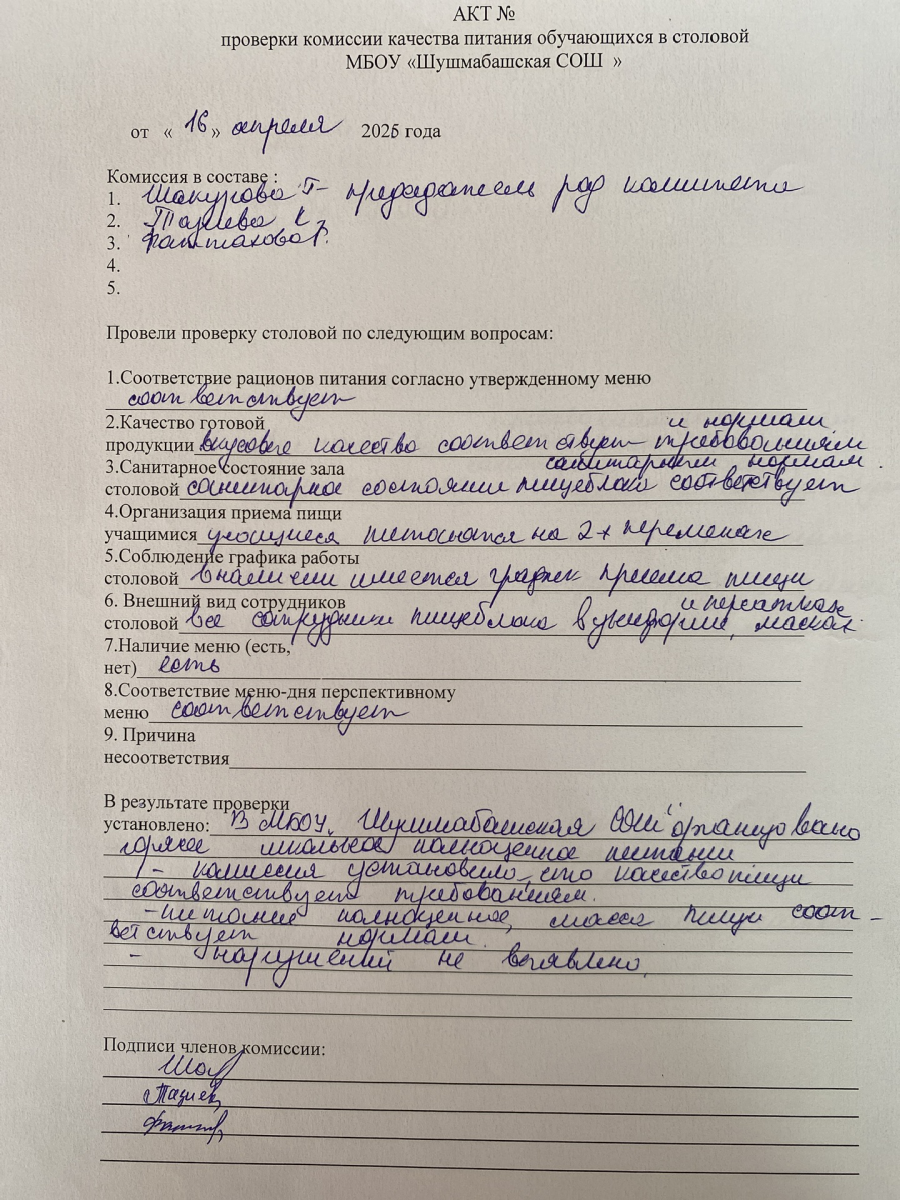 АКТ №
проверки комиссии качества питания обучающихся в столовой
МБОУ «Шушмабашская СОШ »
от « 16 » апреля 2025 года
Комиссия в составе :
1. Шакурова Г- председатель род комитета
2. Тазиева К
3. Фаттахова Г.
4.
5.
Провели проверку столовой по следующим вопросам:
1.Соответствие рационов питания согласно утвержденному меню
соответствует
2.Качество готовой
и нормам
продукции вкусовые качество соответствует требованиям
3.Санитарное состояние зала
санитарным нормам.
столовой санитарное состоянии пищеблока соответствует
4.Организация приема пищи
учащимися учащиеся питаются на 2х переменах
5.Соблюдение графика работы
столовой в наличии имеется график приема пищи
6. Внешний вид сотрудников
и перчатках
столовой все сотрудники пищеблока в униформе, масках
7.Наличие меню (есть,
нет) есть
8.Соответствие меню-дня перспективному
меню соответствует
9. Причина
несоответствия
В результате проверки
установлено: В МБОУ "Шушмабашская СОШ" организовано
горячее школьное полноценное питании
- комиссия установило, что качество пищи
соответствует требованиям.
- питание полноценное, масса пищи соот-
ветствует нормам.
- нарушений не выявлено.
Подписи членов комиссии:
Шак
Тазиев
Фаттах